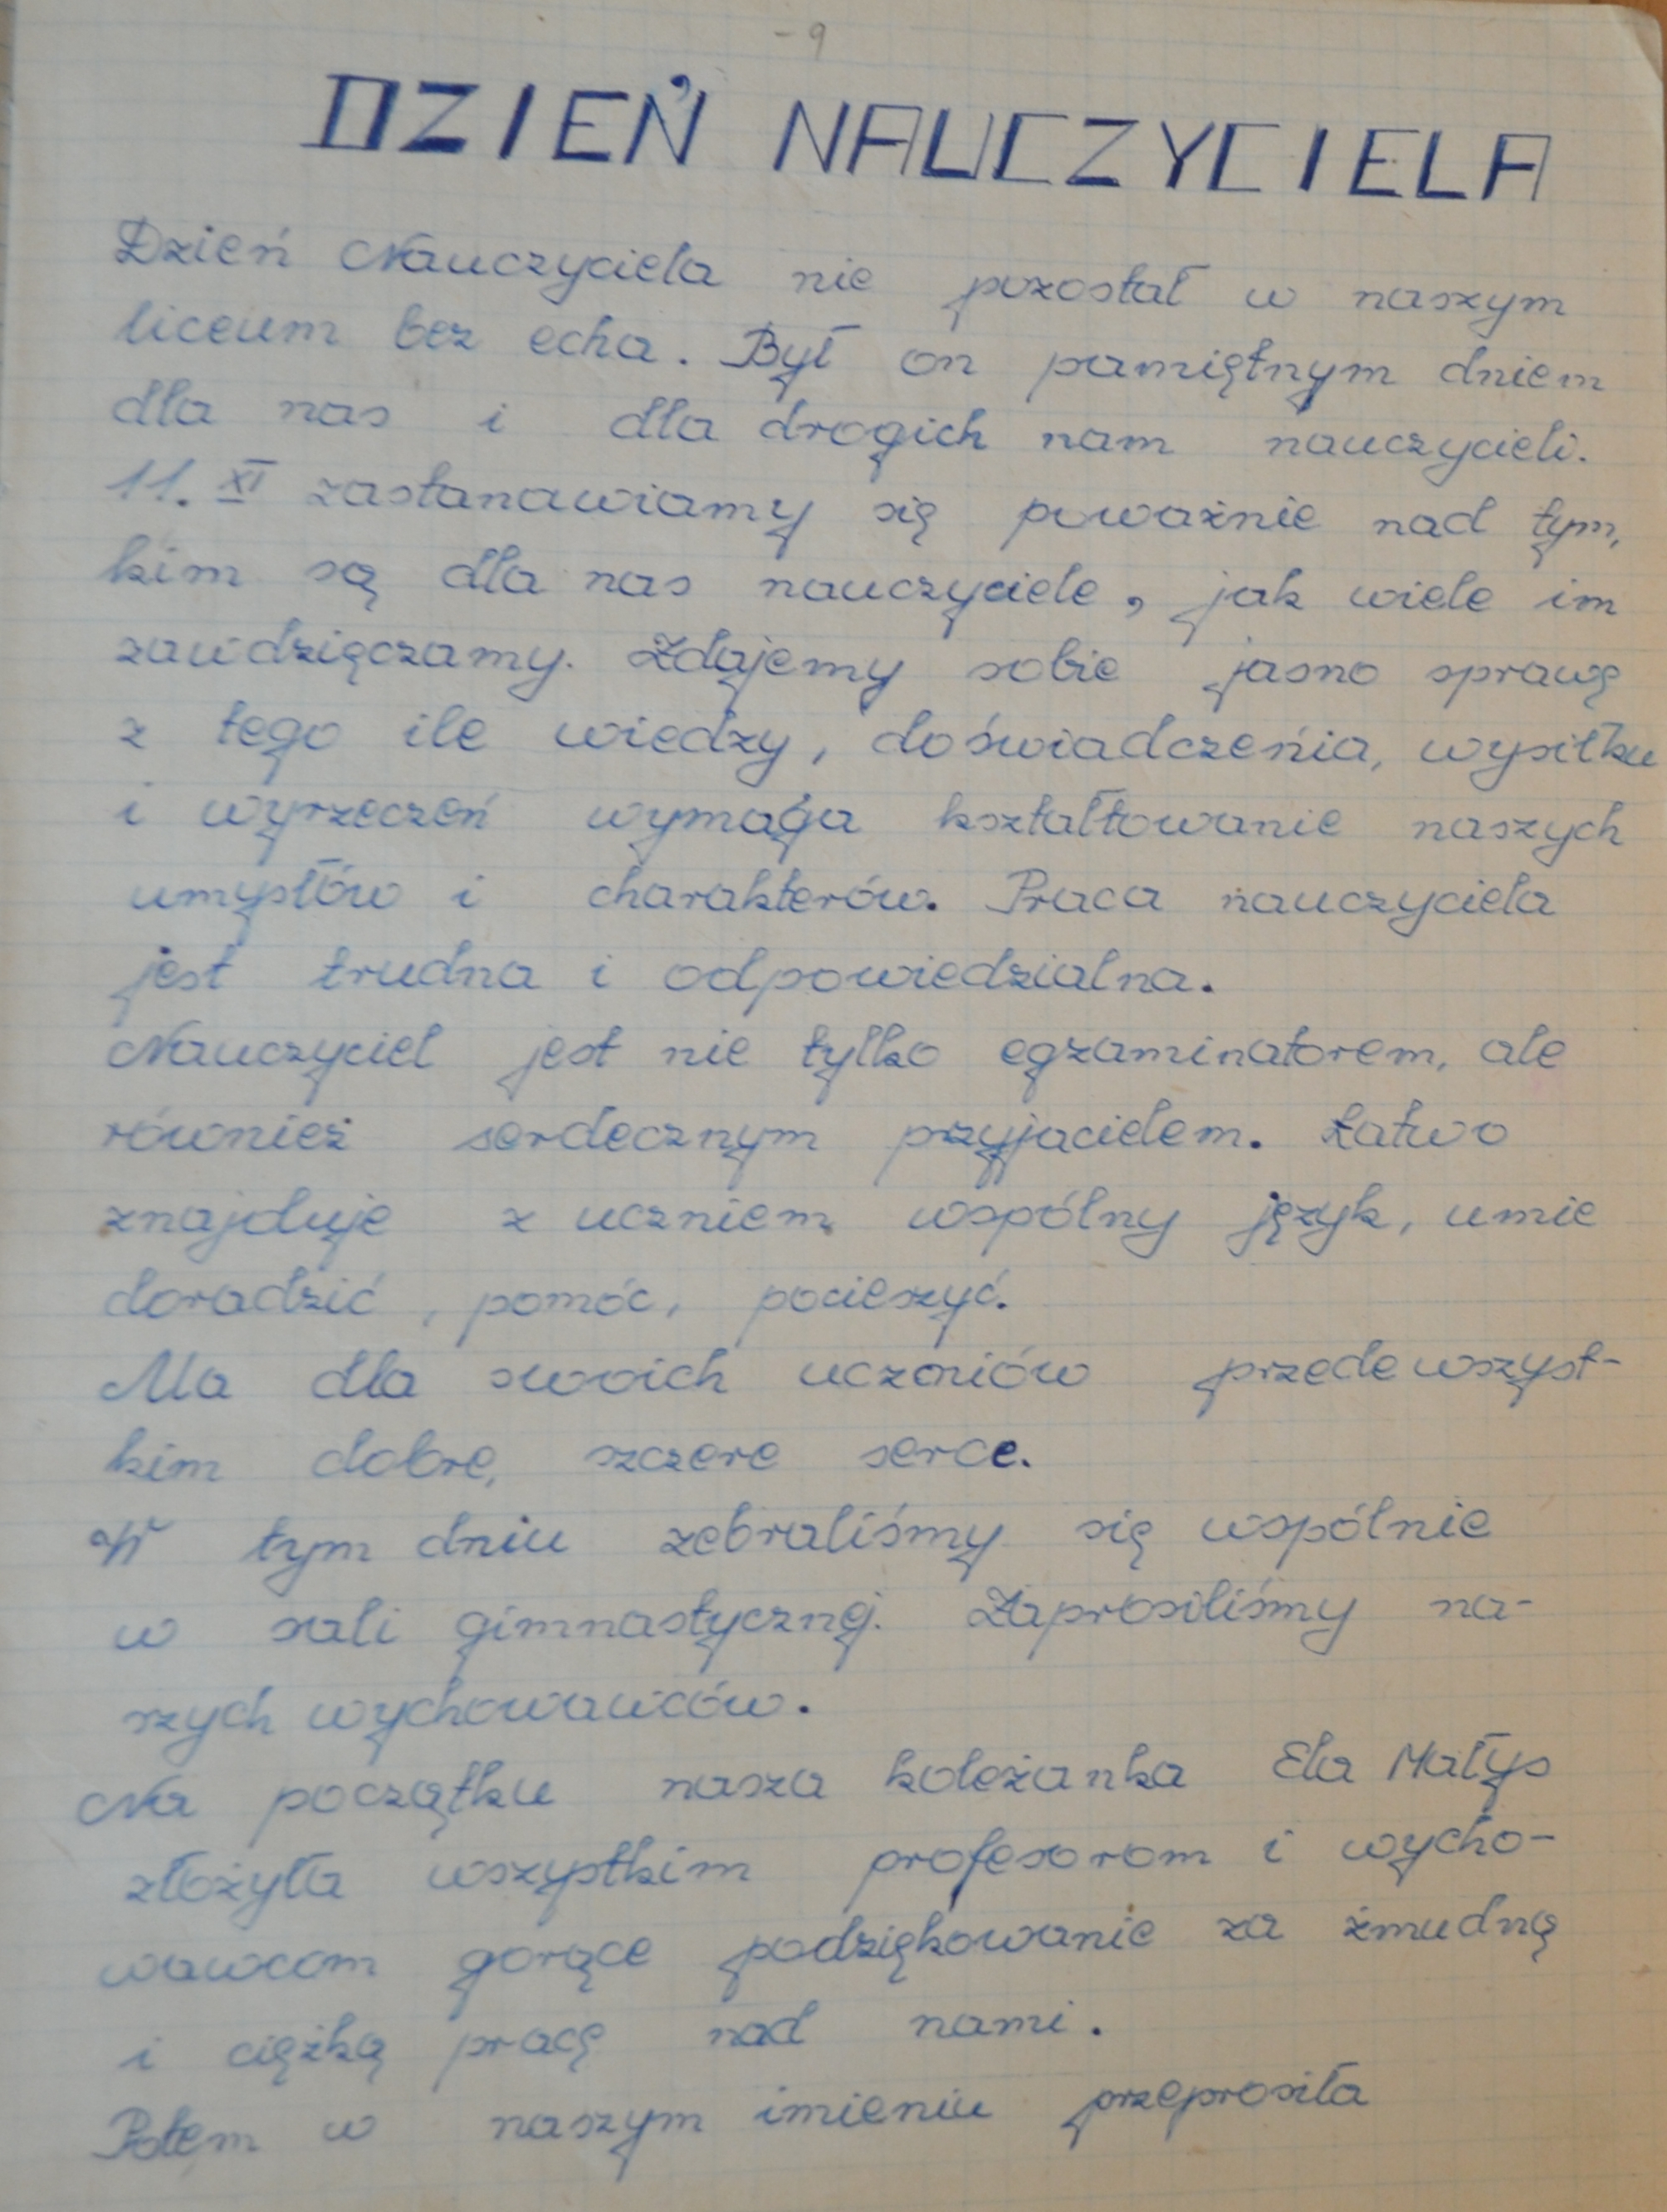 - 9
DZIEŃ NAUCZYCIELA
Dzień Nauczyciela nie pozostał w naszym
liceum bez echa. Był on pamiętnym dniem
dla nas i dla drogich nam nauczycieli.
11. XI zastanawiamy się poważnie nad tym,
kim są dla nas nauczyciele, jak wiele im
zawdzięczamy. Zdajemy sobie jasno sprawę
z tego ile wiedzy, doświadczenia, wysiłku
i wyrzeczeń wymaga kształtowanie naszych
umysłów i charakterów. Praca nauczyciela
jest trudna i odpowiedzialna.
Nauczyciel jest nie tylko egzaminatorem, ale
również serdecznym przyjacielem. Łatwo
znajduje z uczniem wspólny język, umie
doradzić, pomóc, pocieszyć.
Ma dla swoich uczniów przedewszyst-
kim dobre, szczere serce.
W tym dniu zebraliśmy się wspólnie
w sali gimnastycznej. Zaprosiliśmy na-
szych wychowawców.
Na początku nasza koleżanka Ela Małys
złożyła wszystkim profesorom i wycho-
wawcom gorące podziękowanie za żmudną
i ciężką pracę nad nami.
Potem w naszym imieniu przeprosiła